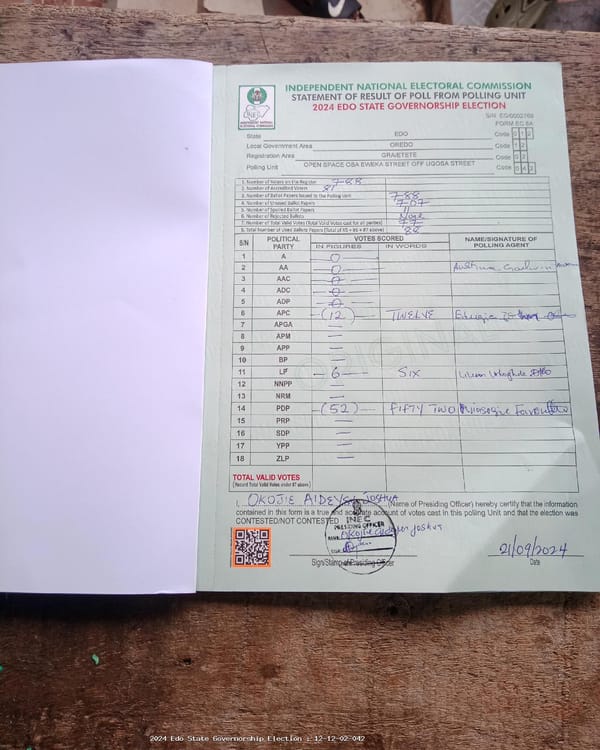 INDEPENDENT NATIONAL ELECTORAL COMMISSION
STATEMENT OF RESULT OF POLL FROM POLLING UNIT
2024 EDO STATE GOVERNORSHIP ELECTION
FORM EC 8A
State EDO Code 12
Local Government Area OREDO Code 12
Registration Area GRA/ETETE Code 02
Polling Unit OPEN SPACE OBA EWEKA STREET OFF UGOSA STREET Code 042
1. Number of Voters on the Register 788
2. Number of Accredited Voters 81
3. Number of Ballot Papers Issued to the Polling Unit 788
4. Number of Unused Ballot Papers 707
5. Number of Spoiled Ballot Papers 11
6. Number of Rejected Ballots None
7. Number of Total Valid Votes (Total Valid Votes cast for all parties) 77
8. Total Number of Used Ballots Papers (Total of #5 + #6 + #7 above) 88
S/N POLITICAL PARTY VOTES SCORED NAME/SIGNATURE OF POLLING AGENT
IN FIGURES IN WORDS
1 A 0
2 AA 0
3 AAC 0
4 ADC 0
5 ADP 0
6 APC (12) TWELVE
7 APGA —
8 APM —
9 APP —
10 BP —
11 LP - 6 — SIX
12 NNPP —
13 NRM —
14 PDP (52) FIFTY TWO
15 PRP —
16 SDP —
17 YPP —
18 ZLP —
TOTAL VALID VOTES
(Record Total Valid Votes under #7 above)
I, OKOJIE JOSHUA (Name of Presiding Officer) hereby certify that the information
contained in this form is a true and accurate account of votes cast in this polling Unit and that the election was
CONTESTED/NOT CONTESTED
INEC
PRESIDING OFFICER
Sign/Stamp of Presiding Officer
21/09/2024
Date
2024 Edo State Governorship Election : 12-12-02-042